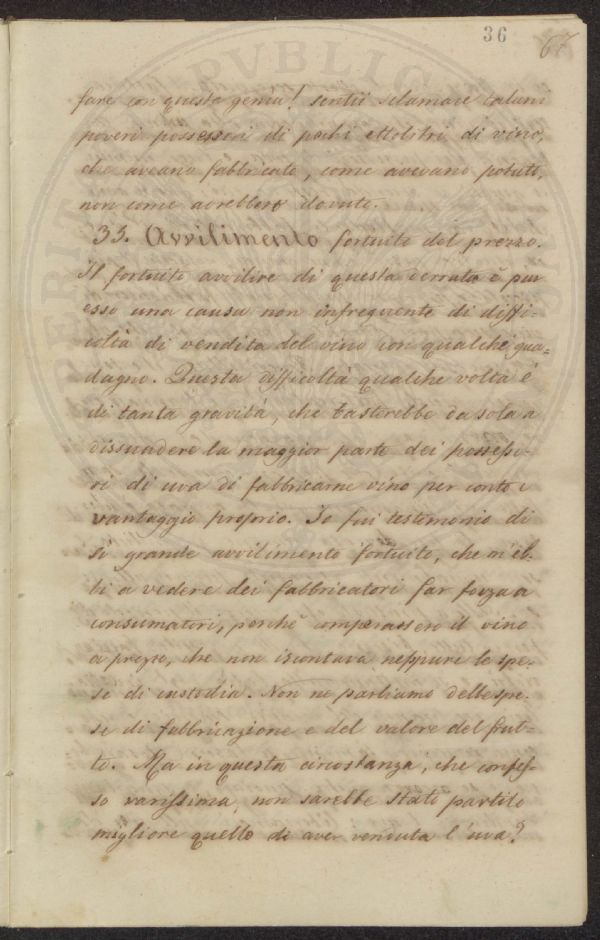 36
67
fare con questa genia! sentii sclamare taluni
poveri possessori di pochi ettolitri di vino,
che aveano fabbricato, come avevano potuto,
non come avrebbero dovuto.
35. Avvilimento fortuito del prezzo.
Il fortuito avvilire di questa derrata è pur
esso una causa non infrequente di diffi-
coltà di vendita del vino con qualche gua=
dagno. Questa difficoltà qualche volta è
di tanta gravità, che basterebbe da sola a
dissuadere la maggior parte dei possesso-
ri di uva di fabbricarne vino per conto e
vantaggio proprio. Io fui testimonio di
sì grande avvilimento fortuito, che m'eb-
bi a vedere dei fabbricatori far forza a
consumatori, perchè comperassero il vino
a prezzo, che non iscontava neppure le spe-
se di custodia. Non ne parliamo delle spe-
se di fabbricazione e del valore del frut-
to. Ma in questa circostanza, che confes-
so rarissima, non sarebbe stato partito
migliore quello di aver venduta l'uva?
PVBLIC